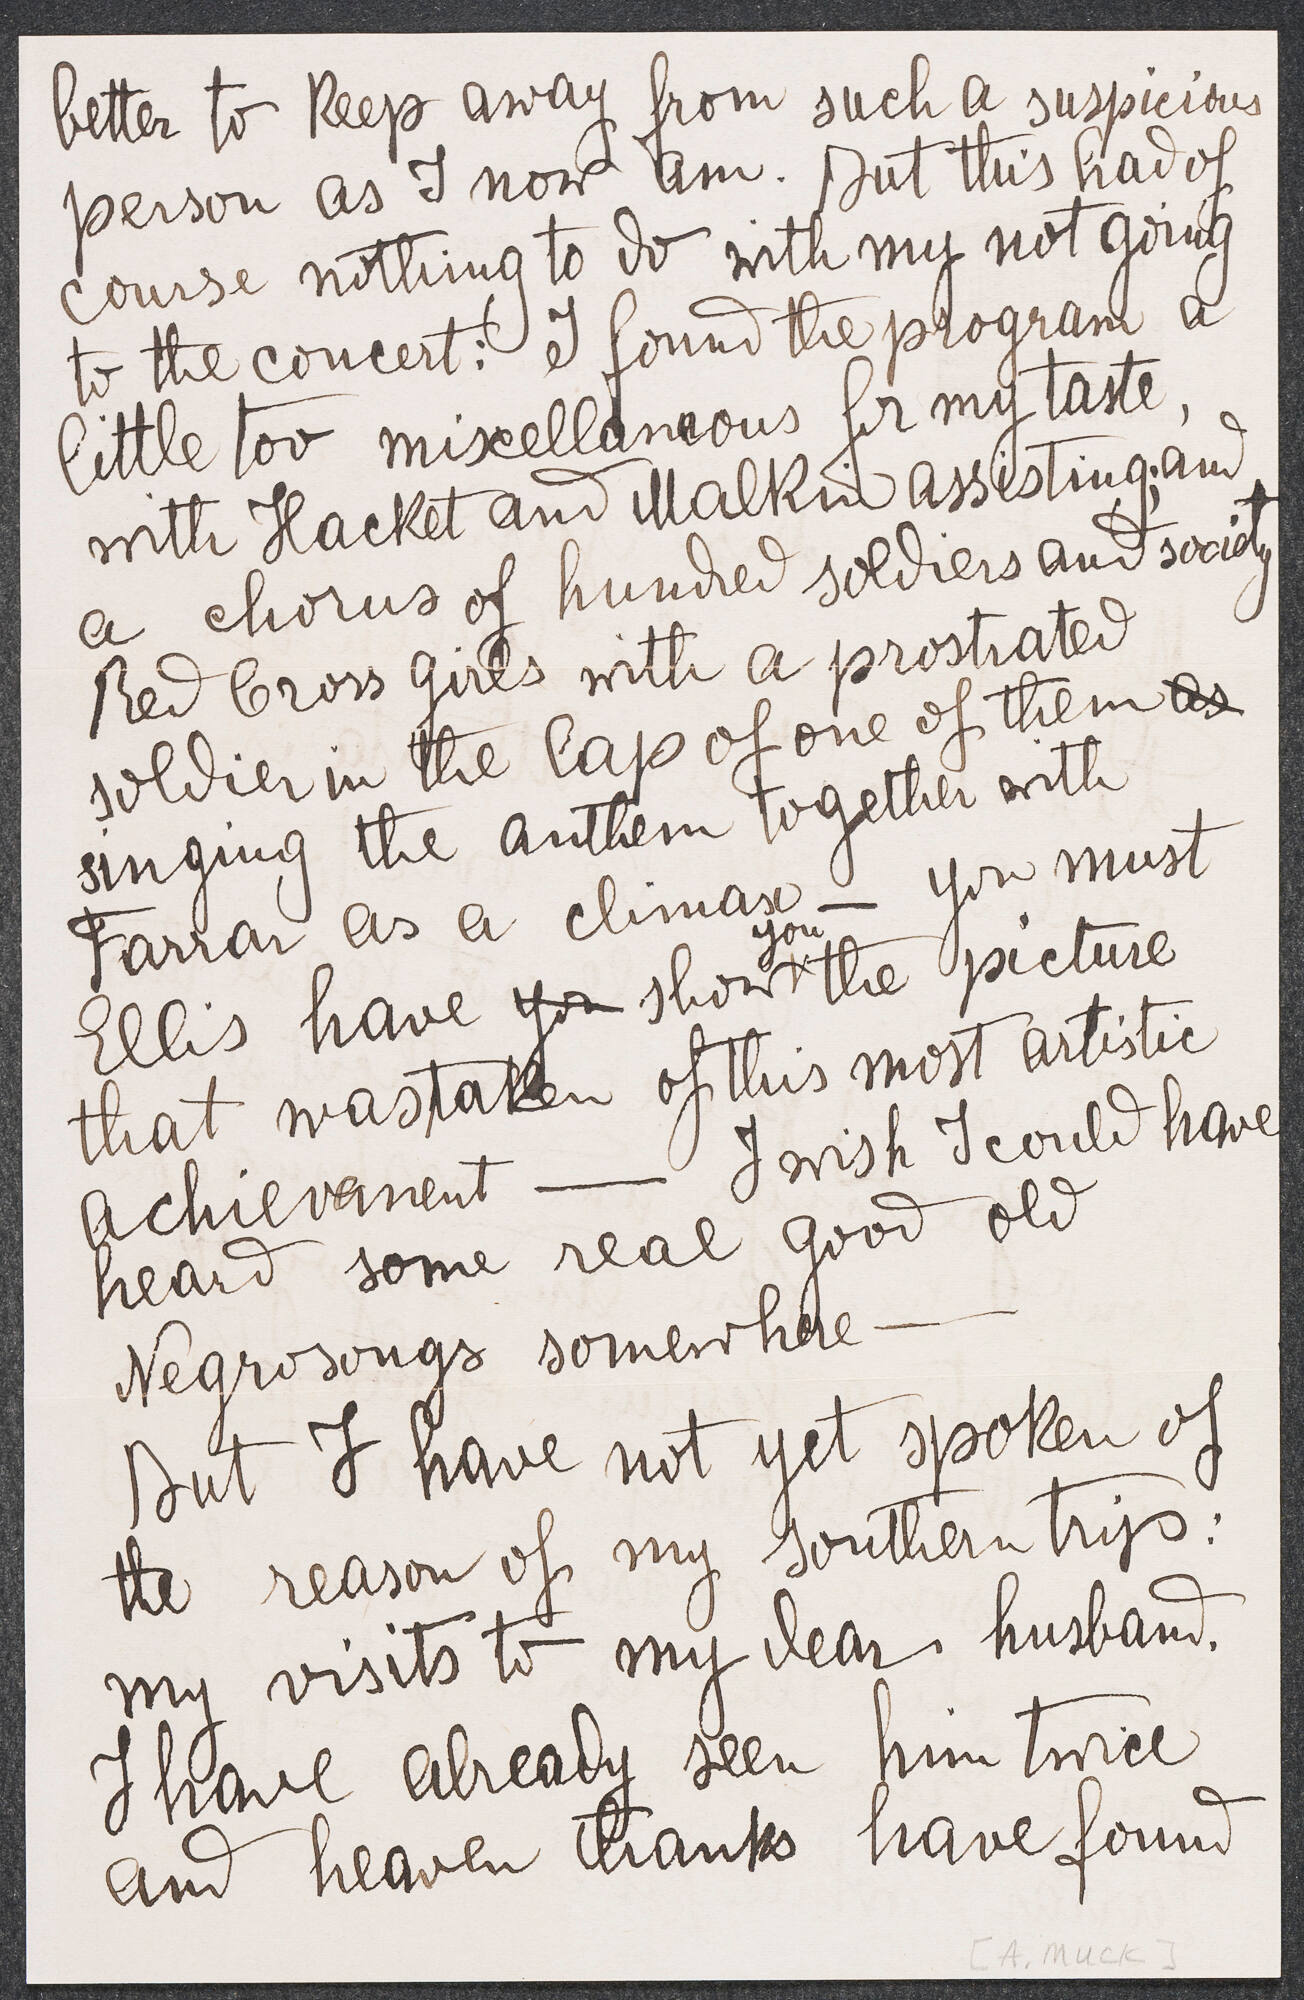 better to keep away from such a suspicious
person as I now am. But this had of
course nothing to do with my not going
to the concert: I found the program a
little too miscellaneous for my taste,
with Hacket and Malkin assisting; and
a chorus of hundred soldiers and society
Red Cross girls with a prostrated
soldier in the lap of one of them as
singing the anthem together with
Farrar as a climax — you must
Ellis have you show you the picture
that was taken of this most artistic
achievement — I wish I could have
heard some real good old
Negrosongs somewhere —
But I have not yet spoken of
the reason of my southern trips:
my visits to my dear husband.
I have already seen him twice
and heaven thanks have found
[A. MUCK]